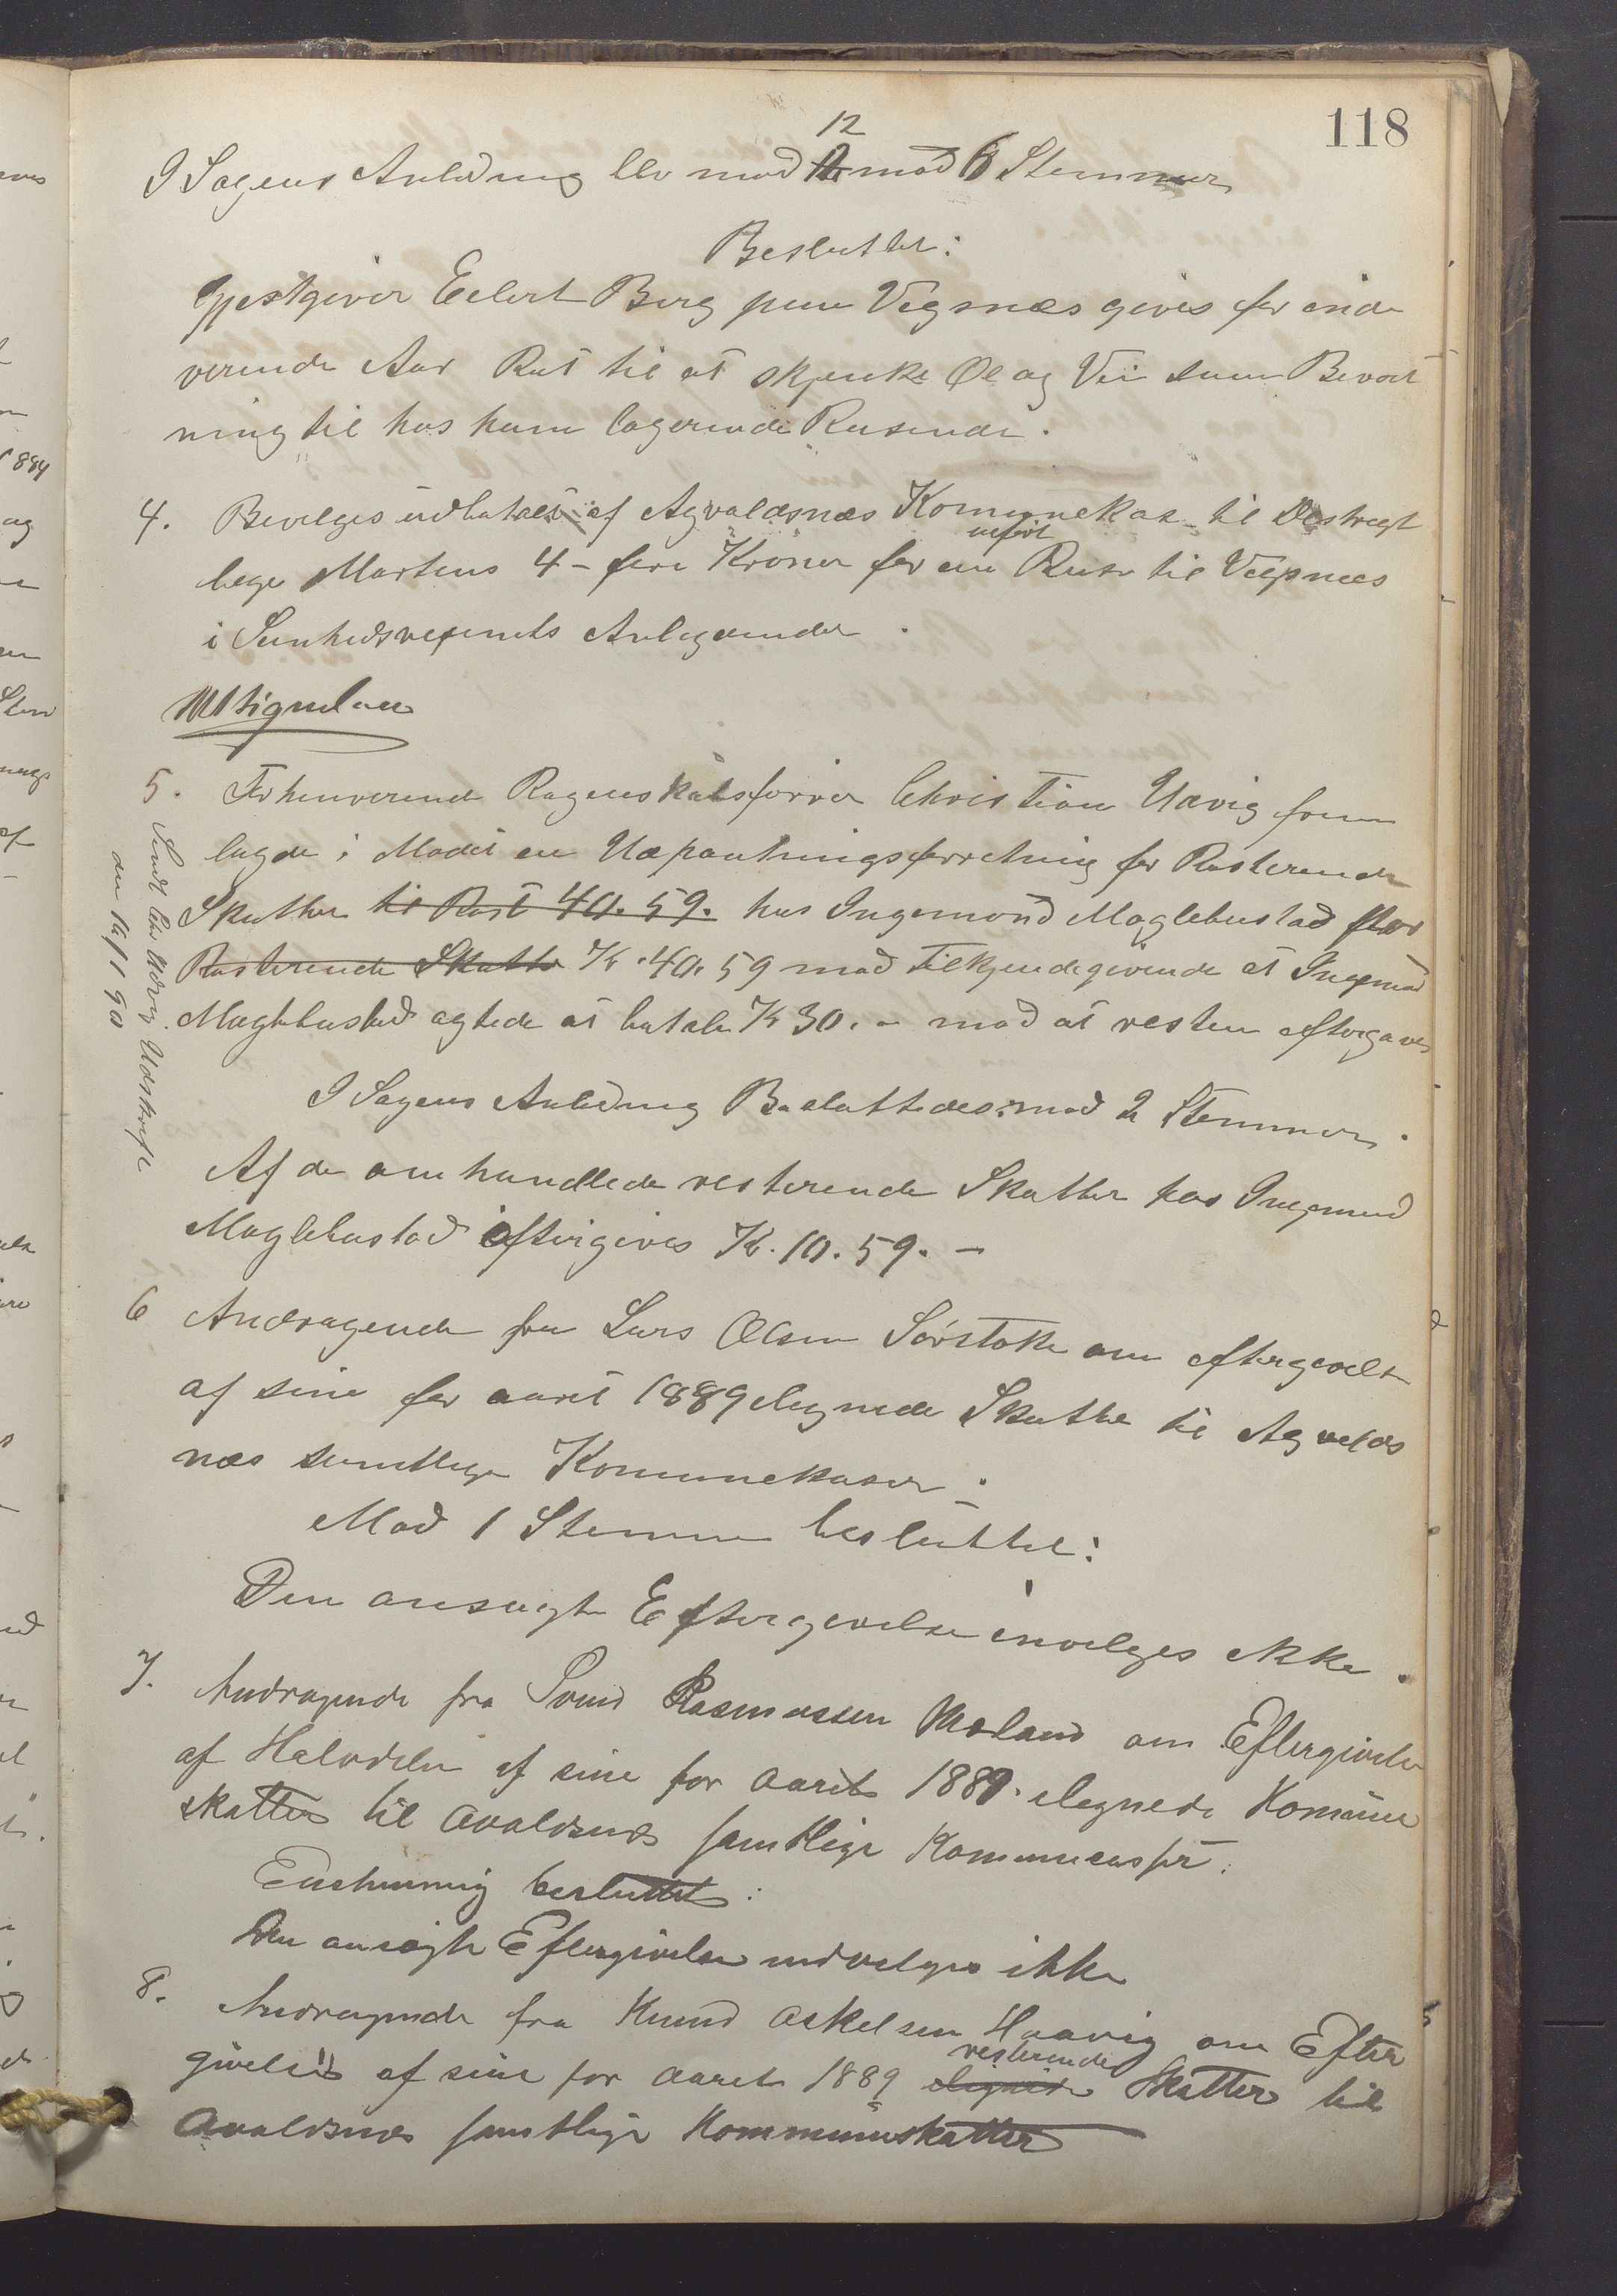 118
12
I Sagens Anledning blev med mod 6 Stemmer
Besluttet:
Gjestgiver Eilert Berg paa Vigsnæs gives for inde
verende Aar Ret til at skjenke Øl og Vin samt Bevert
ning til hos ham logerende Reisende.
4. Bevilges udbetalt af Agvaldsnæs Komunekas til Destregt
udført
lege Martens 4 - fire Kroner for en Reise til Vigsnes
i Sunhedsvesenets Anligender.
Utsignelser
5. Forhenverende Regenskabsfører Christian Udvig frem
lagde i Mødet en Udpantningsforretning for Resterende
Skatter til Rest 40.59. hos Ingemund Maglebustad for
Resterende Skatter Kr. 40.59 med Tilkjendegivende at Ingemund
Maglebustad agtede at betale Kr 30. - mod at resten eftergaves
Sendt Chr Udvig Udskrift
den 16/1 90
I Sagens Anledning Besluttedes: mod 2 Stemmer.
Af de omhandlede resterende Skatter hos Ingemund
Maglebustad eftergives Kr. 10.59. -
6 Andragende fra Lars Olsen Sørstokke om eftergivelse
af sine for aaret 1889 elignede Skatter til Agvalds
næs samtlige Komunekasser.
Mod 1 Stemme besluttet:
Den ansøgte Eftergivelse invilges ikke.
7. Andragende fra Svend Rasmussen Moland om Eftergivelse
af Halvdelen af sine for Aaret 1889 ilignede Komune
skatter til Avaldsnes samtlige Kommunecasser.
Enstemmig besluttet:
Den ansøgte Eftergivelse indvelges ikke
8. Andragende fra Knud Askelsen Haavig om Efter
resterende
givelse af sine for Aaret 1889 elignede Skatter til
Avaldsnes samtlige Kommuneskatter